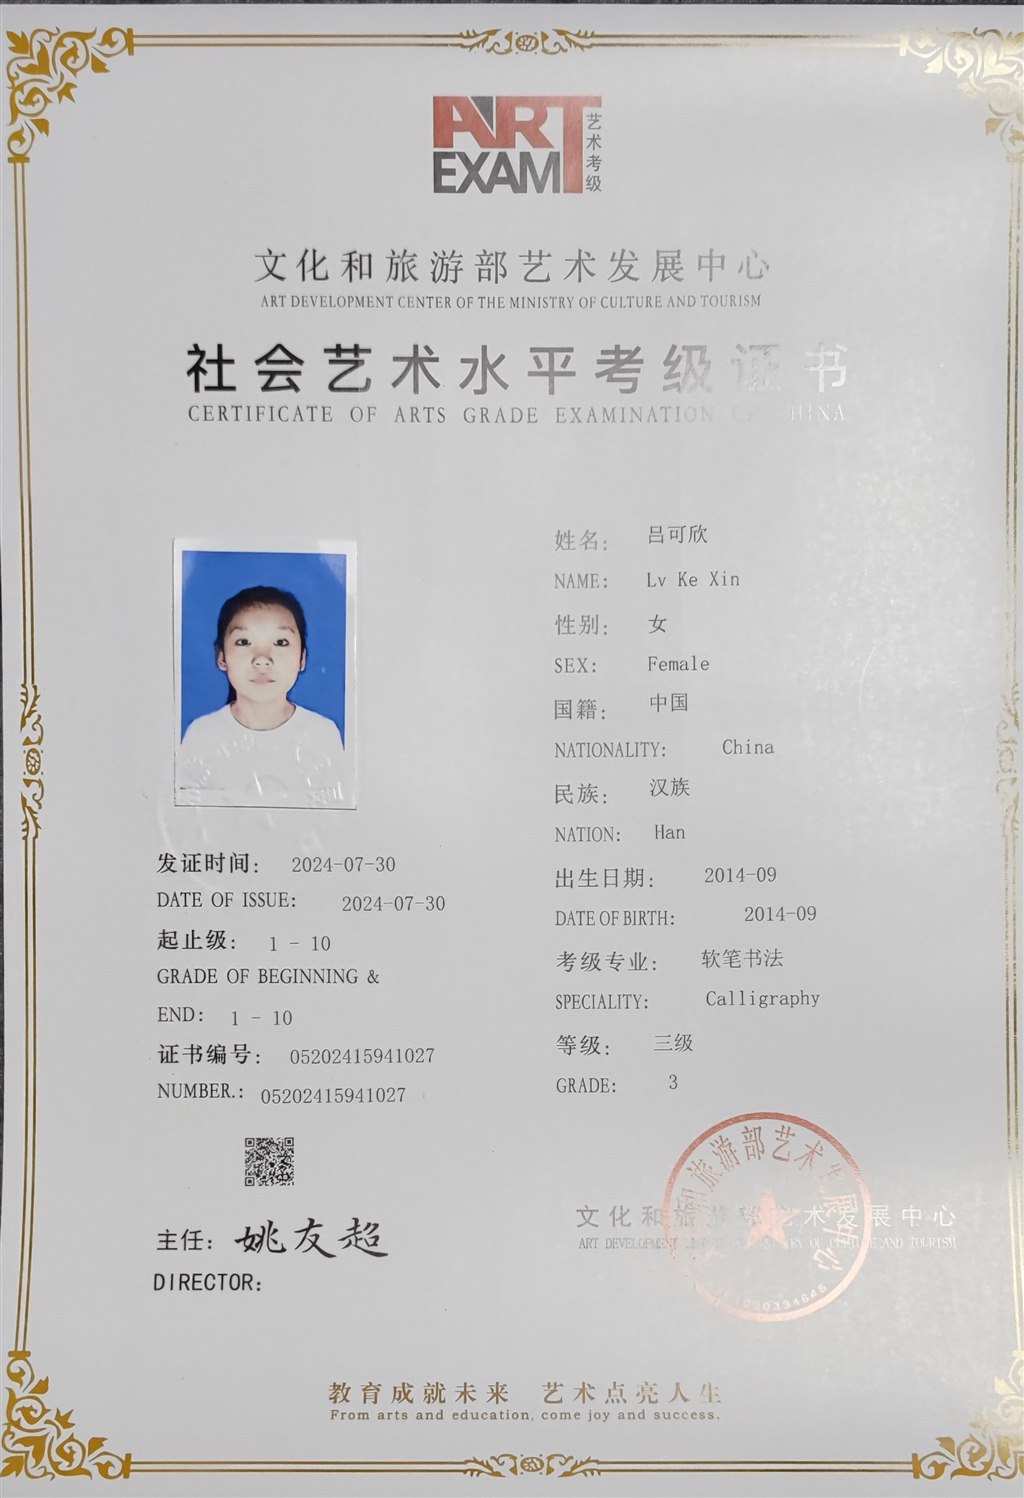 ART
EXAM
艺术考级
文化和旅游部艺术发展中心
ART DEVELOPMENT CENTER OF THE MINISTRY OF CULTURE AND TOURISM
社会艺术水平考级证书
CERTIFICATE OF ARTS GRADE EXAMINATION OF CHINA
姓名： 吕可欣
NAME: Lv Ke Xin
性别： 女
SEX: Female
国籍： 中国
NATIONALITY: China
民族： 汉族
NATION: Han
出生日期： 2014-09
DATE OF BIRTH: 2014-09
考级专业： 软笔书法
SPECIALITY: Calligraphy
等级： 三级
GRADE: 3
发证时间： 2024-07-30
DATE OF ISSUE: 2024-07-30
起止级： 1 - 10
GRADE OF BEGINNING &
END: 1 - 10
证书编号： 05202415941027
NUMBER.: 05202415941027
主任： 姚友超
DIRECTOR:
文化和旅游部艺术发展中心
ART DEVELOPMENT CENTER OF THE MINISTRY OF CULTURE AND TOURISM
教育成就未来 艺术点亮人生
From arts and education, come joy and success.